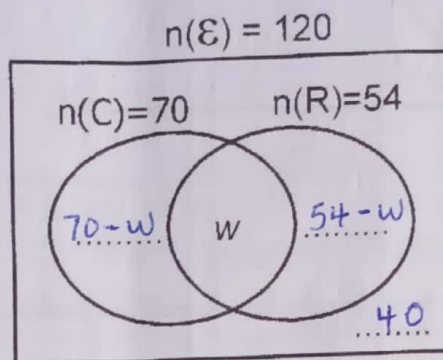 n(Ɛ) = 120
n(C)=70 n(R)=54
70-w w 54-w
40